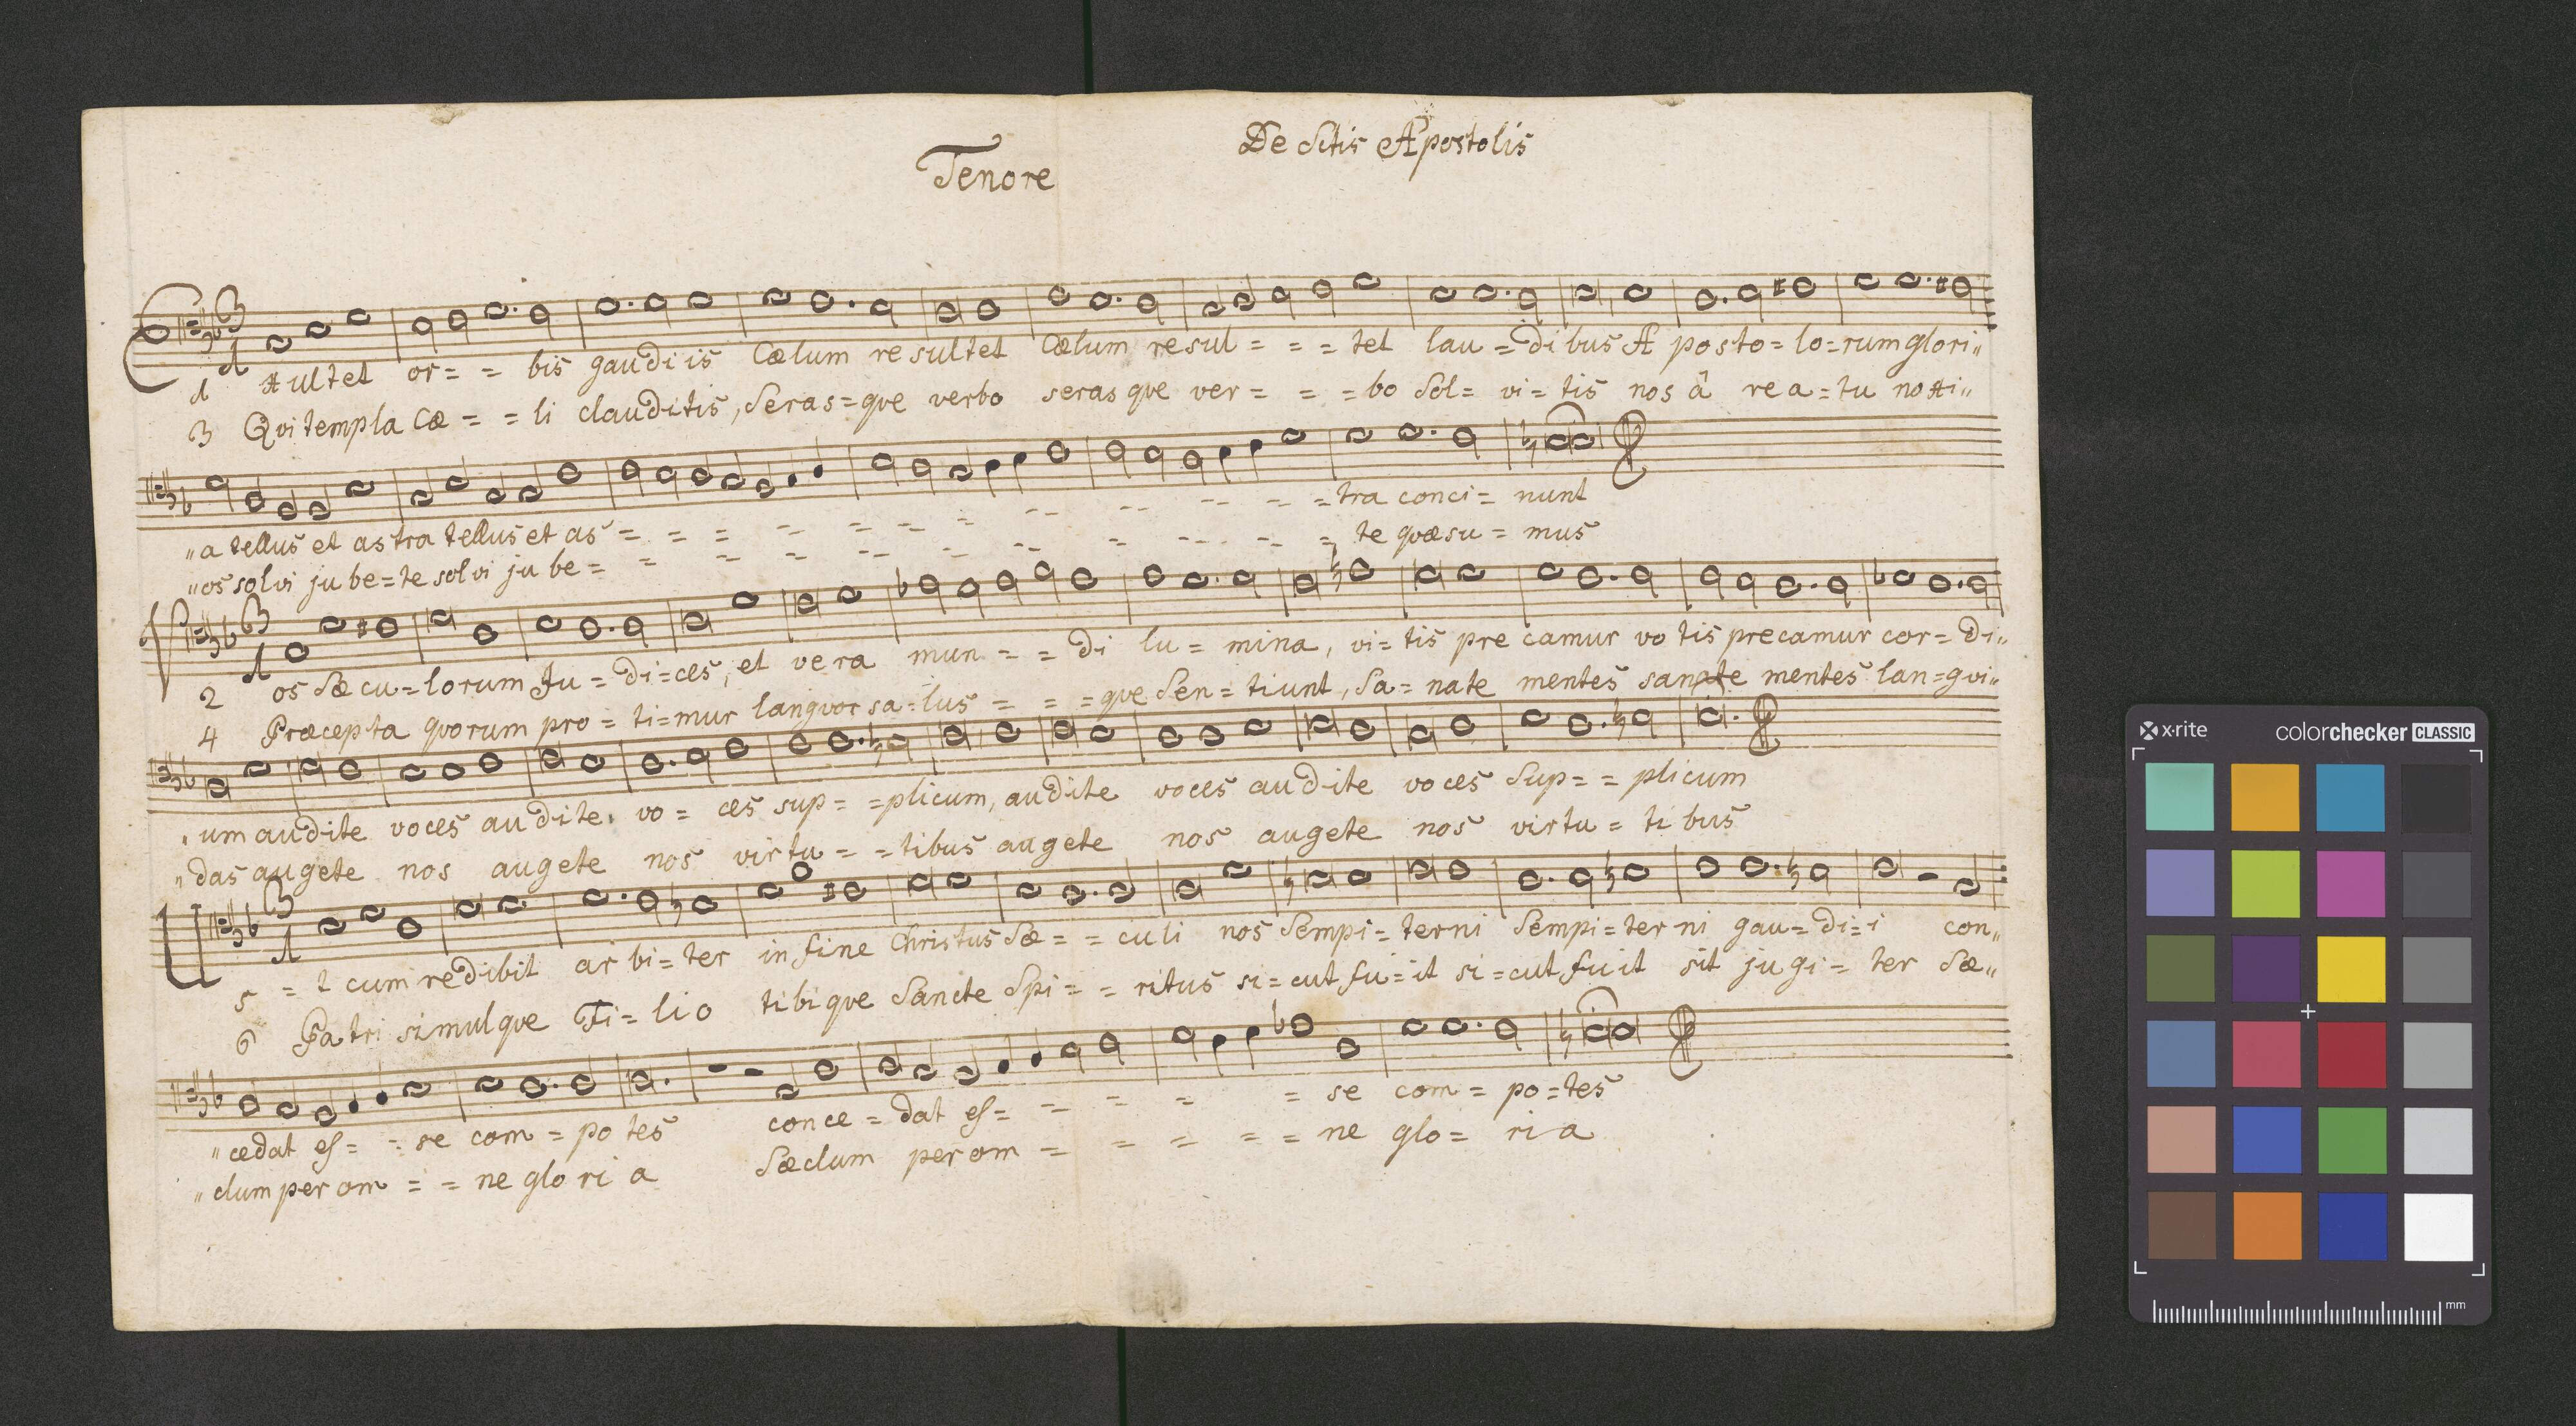 De Sctis Apostolis
Tenore
1 Exultet or= = bis gaudiis Cælum resultet Cælum resul= = = tet lau=dibus Aposto=lo=rum glori„
3 Qvi templa Cæ= = li clauditis, Seras=qve verbo seras qve ver= = =bo Sol= vi=tis nos â rea=tu noxi„
„a tellus et astra tellus et as= = = = = = = = = = = =tra conci= nunt
„os solvi jube=te solvi jube= = = = = = = = = = = te qvæsu= mus
2 Vos Sæcu=lorum Ju=di=ces, et vera mun= =di lu=mina, vi=tis precamur votis precamur cor=di„
4 Præcepta qvorum pro=ti=mur langvor sa=lus = = =qve Sen=tiunt, Sa=nate mentes sanate mentes lan=gvi„
„um audite voces audite vo=ces sup= =plicum, audite voces audite voces Sup= =plicum
„das augete nos augete nos virtu= =tibus augete nos augete nos virtu=tibus
5 Ut cum redibit arbi=ter in fine Christus Sæ= =culi nos Sempi=terni Sempi=terni gau=di=i con„
6 Patri simulqve Fi=lio tibiqve Sancte Spi= =ritus si=cut fu=it si=cut fuit sit jugi=ter Sæ„
„cedat es= =se com=potes conce=dat es= = = = = se com=po=tes
„clum per om= =ne gloria Sæclum per om= = = = = ne glo=ria
x-rite colorchecker CLASSIC
mm